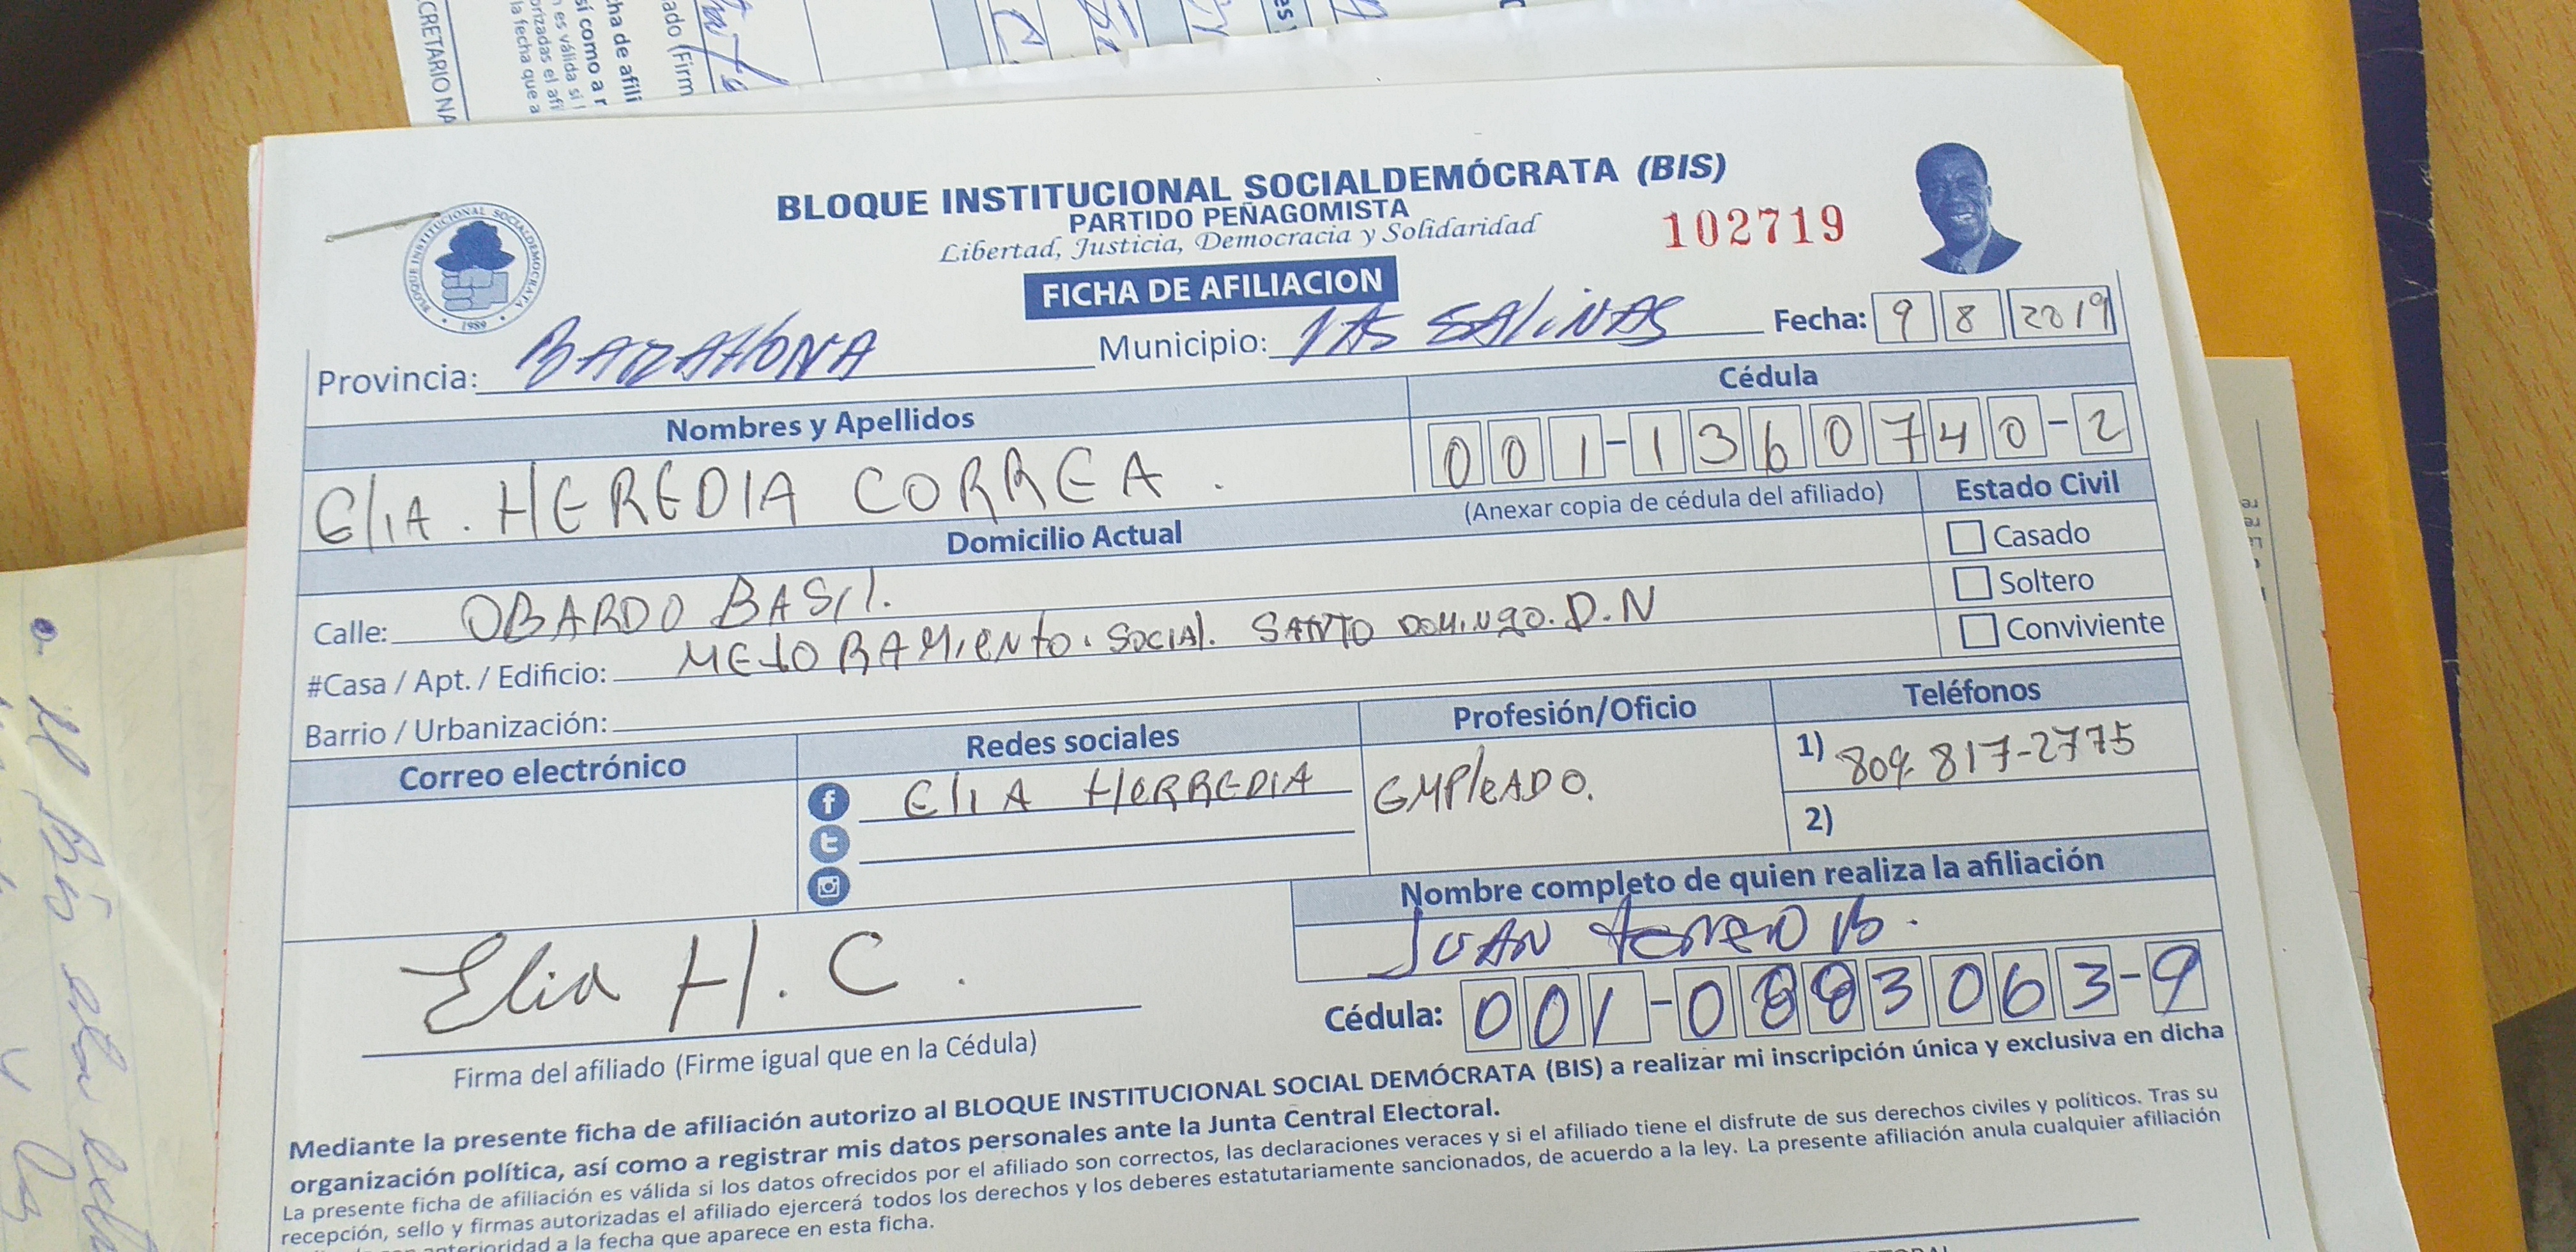 BLOQUE INSTITUCIONAL SOCIALDEMÓCRATA (BIS)
PARTIDO PEÑAGOMISTA
Libertad, Justicia, Democracia y Solidaridad
102719
FICHA DE AFILIACION
BLOQUE INSTITUCIONAL SOCIALDEMOCRATA
1989
Provincia: BARAHONA Municipio: LAS SALINAS Fecha: 9 8 2019
Nombres y Apellidos Cédula
ElIA. HEREDIA CORREA. 001-1360740-2
(Anexar copia de cédula del afiliado)
Domicilio Actual Estado Civil
Casado
Calle: OBARDO BASIl. Soltero
#Casa / Apt. / Edificio: MEJORAMIENTO. SOCIAl. SANTO DOMINgO. D.N Conviviente
Barrio / Urbanización:
Correo electrónico Redes sociales Profesión/Oficio Teléfonos
ElIA HERREDIA EMPleADO. 1) 809 817-2775
2)
Nombre completo de quien realiza la afiliación
JUAN B.
Elia H. C.
Cédula: 001-0 3063-9
Firma del afiliado (Firme igual que en la Cédula)
Mediante la presente ficha de afiliación autorizo al BLOQUE INSTITUCIONAL SOCIAL DEMÓCRATA (BIS) a realizar mi inscripción única y exclusiva en dicha
organización política, así como a registrar mis datos personales ante la Junta Central Electoral.
La presente ficha de afiliación es válida si los datos ofrecidos por el afiliado son correctos, las declaraciones veraces y si el afiliado tiene el disfrute de sus derechos civiles y políticos. Tras su
recepción, sello y firmas autorizadas el afiliado ejercerá todos los derechos y los deberes estatutariamente sancionados, de acuerdo a la ley. La presente afiliación anula cualquier afiliación
anterioridad a la fecha que aparece en esta ficha.